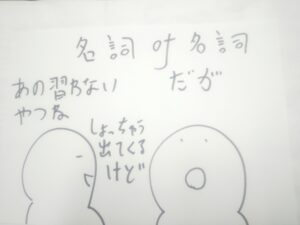 名詞 of 名詞
だが
あの習わない
やつな
しょっちゅう
出てくる
けど